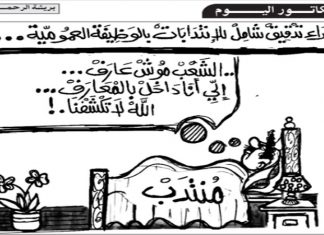 كاتور اليوم
بريشة الرحمـ
تدقيق شامل للإنتدابات بالوظيفة العمومية...
..الشعب موش عارف...
إلّي أنا داخل بالمعارف...
اللّه لا تكشفنا.!
منتدب